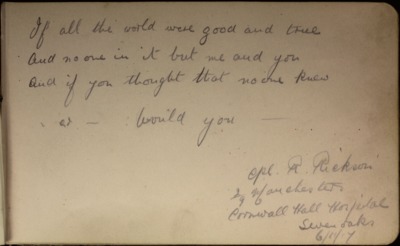 If all the world were good and true
And no one in it but me and you
And if you thought that no one knew
- or - Would you -
Cpl. R. Rickson
2/ Manchesters
Cornwall Hall Hospital
Sevenoaks